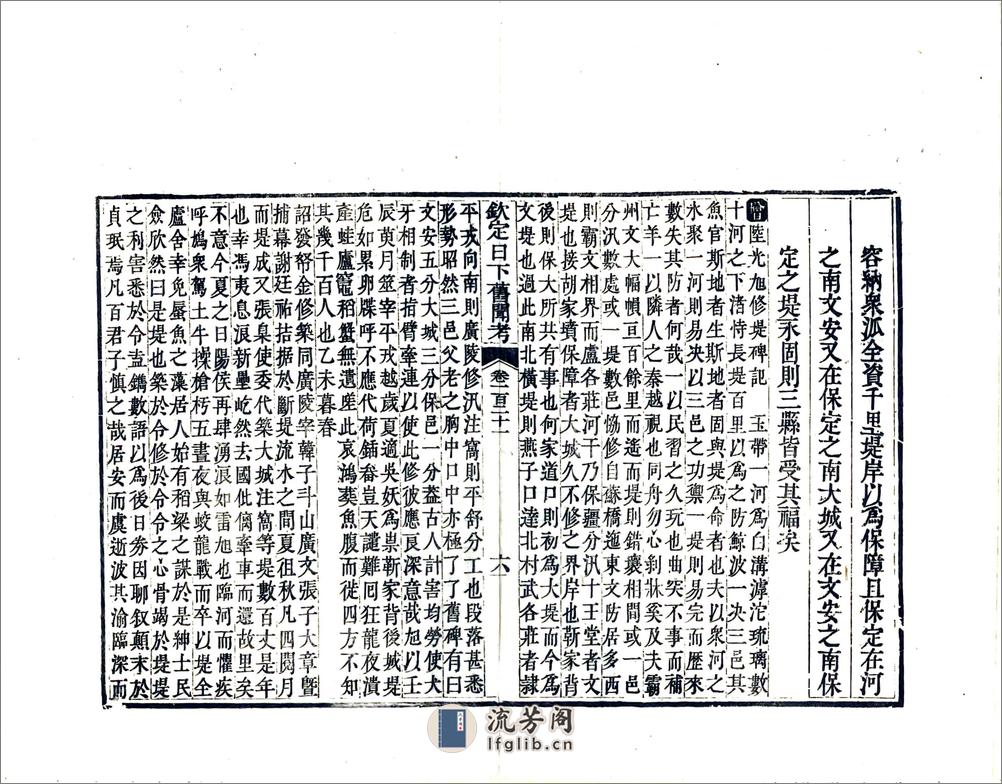 容納衆派全資千里堤岸以爲保障且保定在河
之南文安又在保定之南大城又在文安之南保
定之堤永固則三縣皆受其福矣
陸光旭修堤碑記 玉帶一河爲白溝滹沱琉璃數
十河之下渚恃長堤百里以爲之防鯨波一决三邑其
魚官斯地者生斯地者固與堤爲命者也夫以衆河之
水聚一河則易决以三邑之功禦一堤則易完而歴來
數失其防者何哉一以民習之久玩也曲突不事而補
亡羊一以隣人之秦越視也同舟勿心剥牀奚及夫霸
州文大幅幀亘百餘里而遥而堤則錯壤相間或一邑
分汛數處或一堤數邑協修自蘇橋迤東文防居多西
則霸文相界而盧各莊河干乃保疆分汛十王堂者文
堤也接胡家墳保障者大城久不修之界岸也靳家背
後則保大所共有事也何家道口則初爲大堤而今爲
文堤也過此南北橫堤則燕子口達北村武各莊者隸
欽定日下舊聞考 卷一百二十一 六
平戎向南則廣陵修汛注窩則平舒分工也段落甚悉
形勢昭然三邑父老之胸中口中亦極了了舊碑有曰
文安五分大城三分保邑一分葢古人計害均勞使犬
牙相制者指臂牽連以使此修彼應良深意哉旭以壬
辰萸月筮宰平戎歲癸巳夏適吳妖爲祟靳家背後城堤
危如累卵牒呼不應代荷鍤畚豈天譴難囘狂龍夜潰
產蛙廬竈稻蟹無遺嗟此哀鴻葬魚腹而徙四方不知
其幾千百人也乙未暮春
詔發帑金修築同廣陵宰韓子斗山廣文張子大章曁
捕幕謝廷祐拮据於斷堤流水之間夏徂秋凡四閱月
而堤成又張臬使委代築大城注窩等堤數百丈是年
也幸馮夷息浪新壘屹然去國仳㒧牽車而還故里矣
不意今夏之日陽侯再肆湧浪如雷旭也臨河而懼疾
呼鳩衆駕土牛揉槍杇五晝夜與蛟龍戰而卒以堤全
廬舍幸免蜃魚之藻居人始有稻粱之謀於是紳士民
僉欣然曰是堤也築於令修於令令之心骨竭於堤堤
之利害悉於令盍鐫數語以爲後日劵因聊叙顛末於
貞珉焉凡百君子慎之哉居安而虞逝波其淪臨深而
流芳阁
lfglib.cn